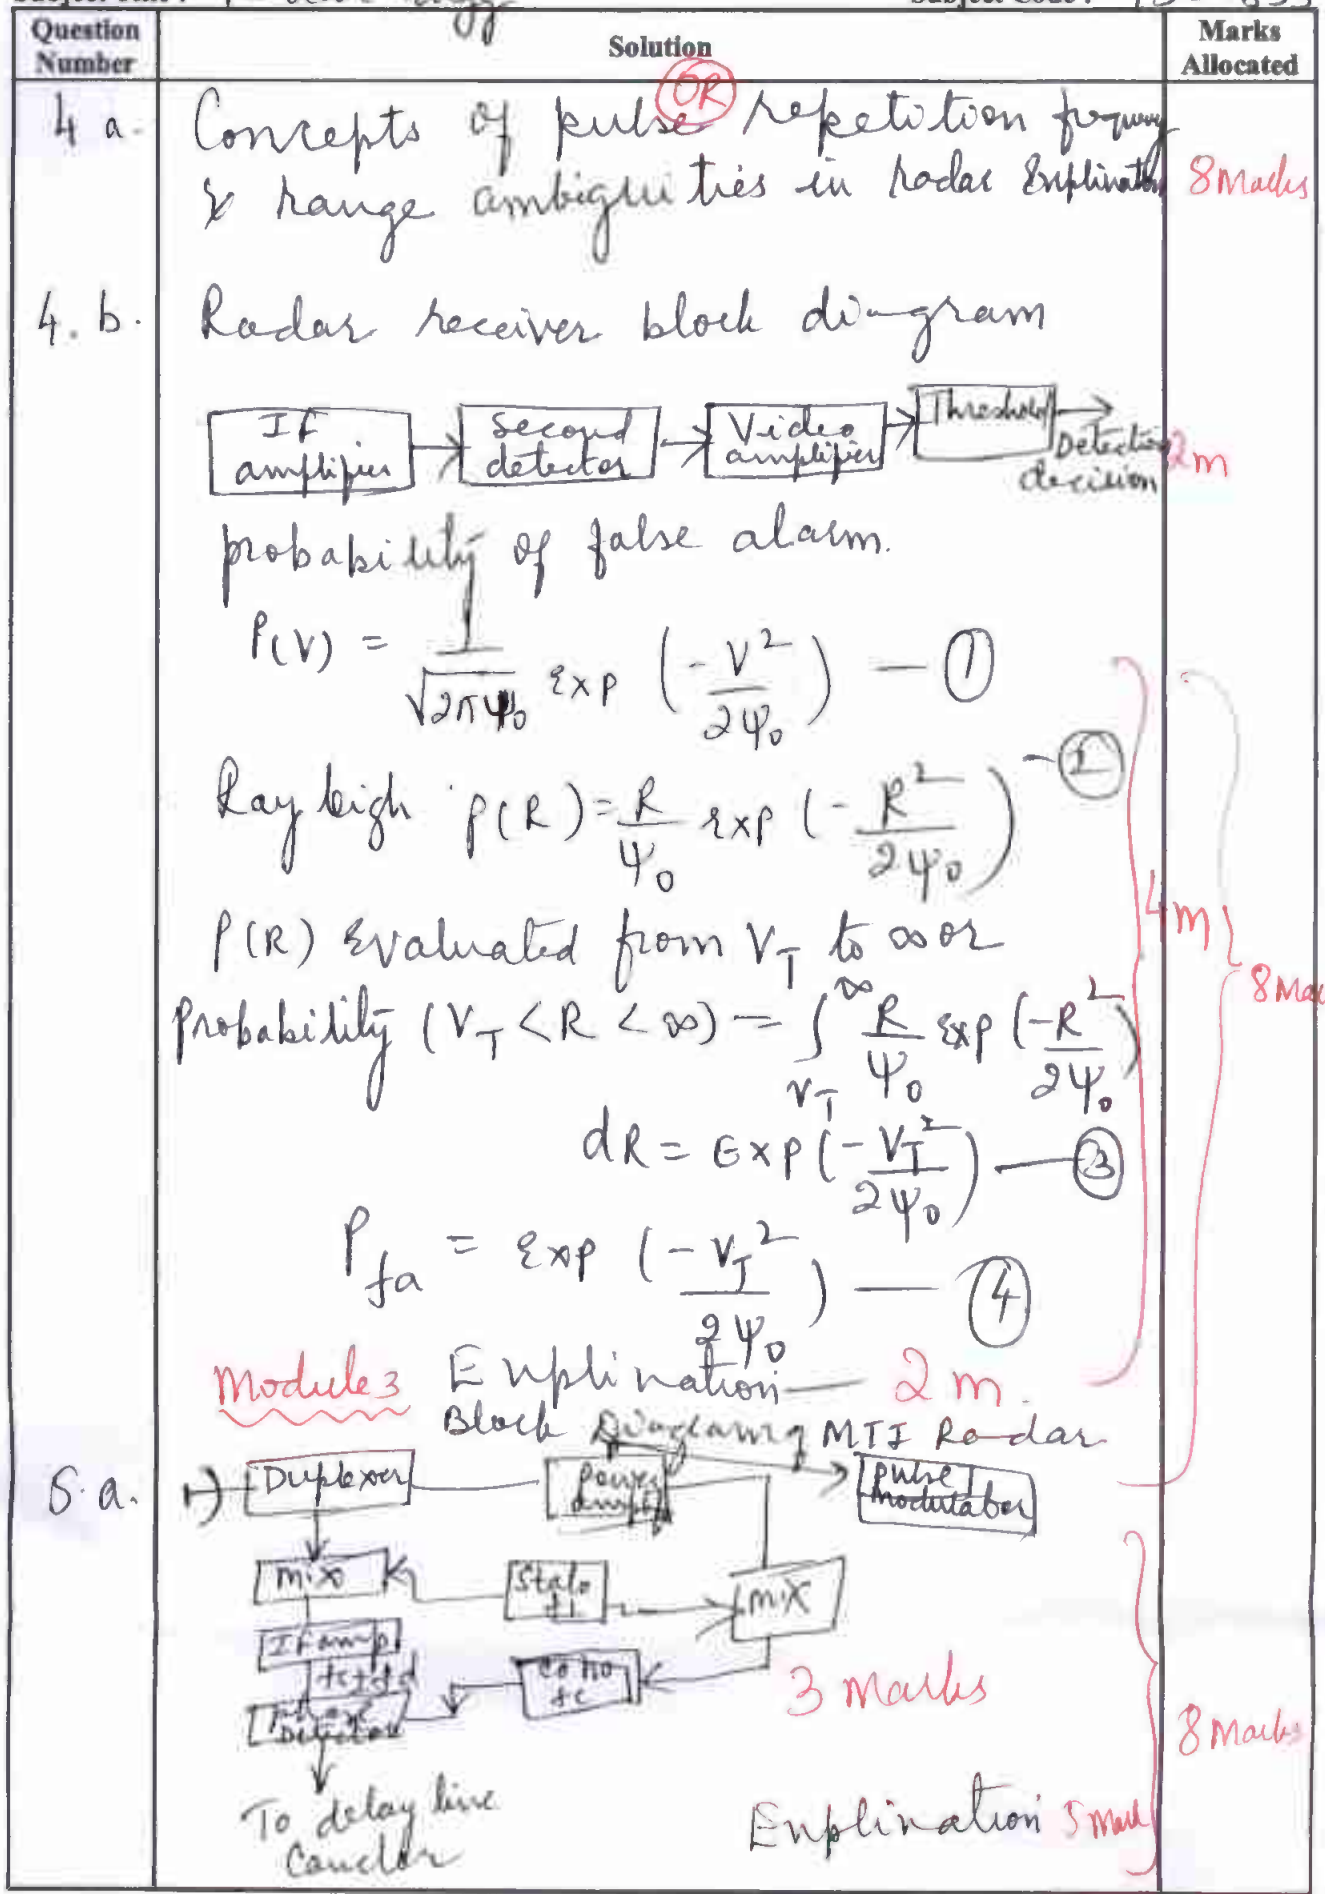 Question Number
Solution
Marks Allocated
OR
4 a. Concepts of pulse repetition frequency
& range ambiguities in radar Explination 8 Marks
4. b. Radar receiver block diagram
IF amplifier
Second detector
Video amplifier
Threshold
Detection decision
2m
probability of false alarm.
P(V) = 1/√2πψ₀ Exp (-V²/2ψ₀) — ①
Rayleigh P(R) = R/ψ₀ Exp (-R²/2ψ₀) - ②
P(R) Evaluated from V_T to ∞ or
Probability (V_T < R < ∞) = ∫_{V_T}^∞ R/ψ₀ Exp (-R²/2ψ₀)
dR = Exp (-V_T²/2ψ₀) — ③
4m
8 Mar
P_fa = Exp (-V_T²/2ψ₀) — ④
Module 3 Explination — 2m.
Block Diagram of MTI Radar
5. a. Duplexer
Power ampl
Pulse modulator
mix
Stalo fl
mix
IF amp
Coho fc
Detector
3 Marks
8 Marks
To delay line
Cancler
Explination 5 Mark